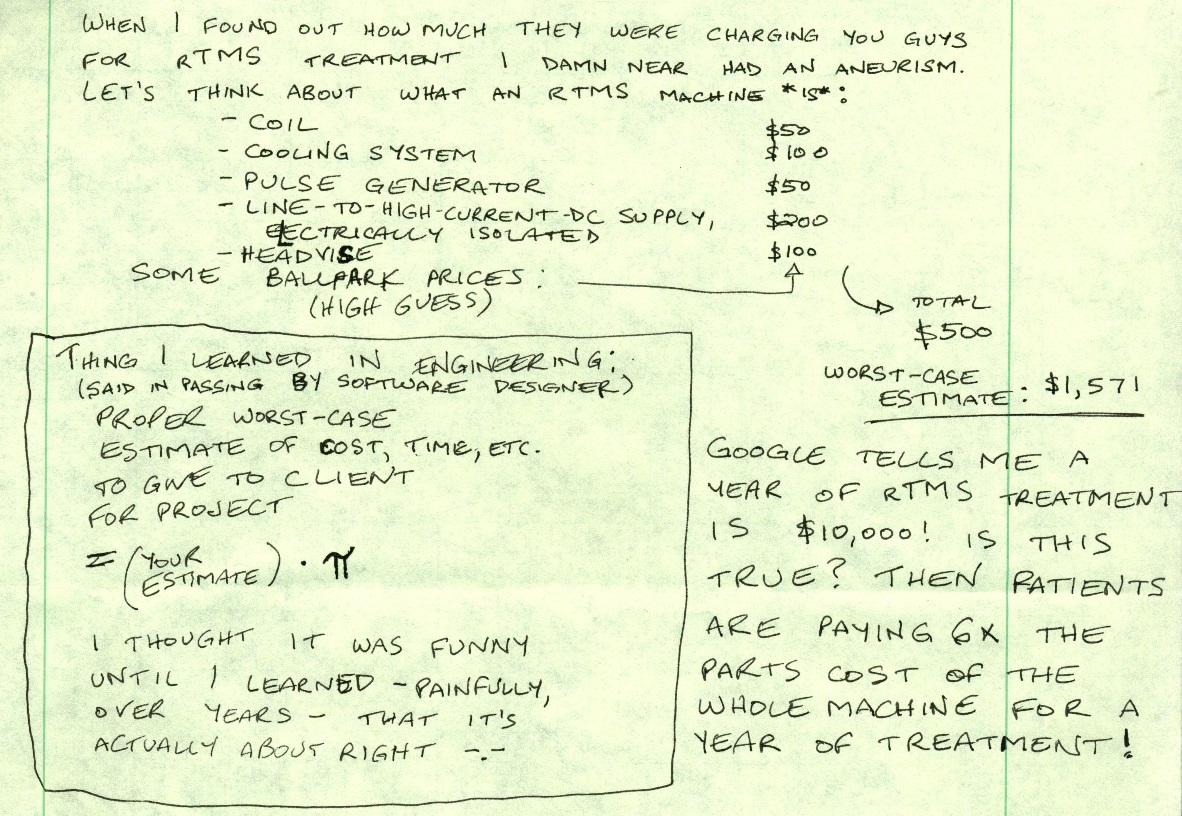 WHEN I FOUND OUT HOW MUCH THEY WERE CHARGING YOU GUYS
FOR RTMS TREATMENT I DAMN NEAR HAD AN ANEURISM.
LET'S THINK ABOUT WHAT AN RTMS MACHINE *IS*:
- COIL $50
- COOLING SYSTEM $100
- PULSE GENERATOR $50
- LINE-TO-HIGH-CURRENT-DC SUPPLY, $200
ELECTRICALLY ISOLATED
- HEADVISE $100
SOME BALLPARK PRICES:
(HIGH GUESS)
TOTAL
$500
WORST-CASE
ESTIMATE: $1,571
THING I LEARNED IN ENGINEERING:
(SAID IN PASSING BY SOFTWARE DESIGNER)
PROPER WORST-CASE
ESTIMATE OF COST, TIME, ETC.
TO GIVE TO CLIENT
FOR PROJECT
= (YOUR
ESTIMATE) · π
I THOUGHT IT WAS FUNNY
UNTIL I LEARNED - PAINFULLY,
OVER YEARS - THAT IT'S
ACTUALLY ABOUT RIGHT -.-
GOOGLE TELLS ME A
YEAR OF RTMS TREATMENT
IS $10,000! IS THIS
TRUE? THEN PATIENTS
ARE PAYING 6X THE
PARTS COST OF THE
WHOLE MACHINE FOR A
YEAR OF TREATMENT!